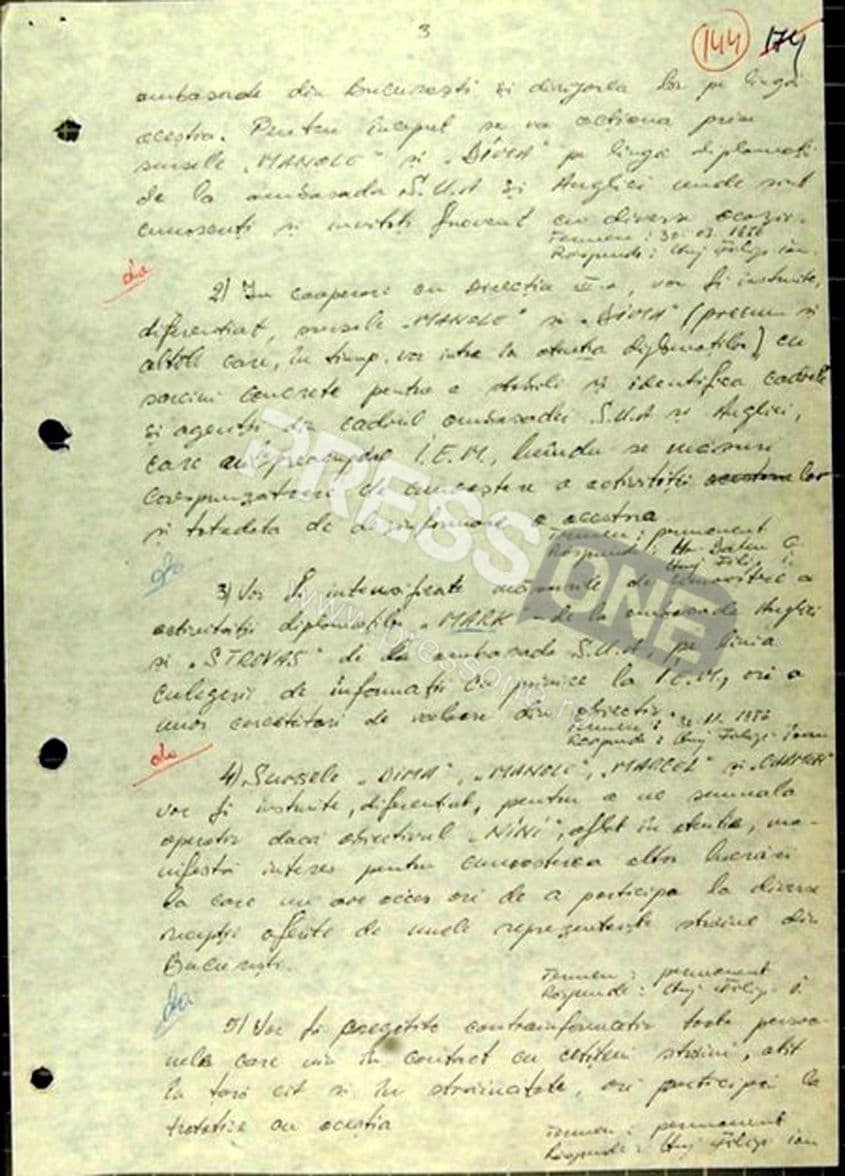 3
144 174
ambasade din București și dirijarea lor pe lîngă
acestia. Pentru început se va acționa prin
sursele „MANOLE" și „DIMA" pe lîngă diplomați
de la ambasada S.U.A și Angliei unde sînt
cunoscuți și invitați frecvent cu diverse ocazii.
Termen: 30.03.1986
Răspunde:
da
2) În cooperare cu Direcția III-a, vor fi instruite,
diferențiat, sursele „MANOLE" și „DIMA" (precum și
altele care, în timp, vor intra în atenția diplomaților) cu
sarcini concrete pentru a stabili și identifica cadrele
și agenții din cadrul ambasadei S.U.A și Angliei,
care au preocupări I.E.M., luîndu-se măsuri
corespunzătoare de cunoaștere a activității acestora lor
și totodată de dezinformare a acestora
Termen: permanent
Răspunde:
da
3) Vor fi intensificate măsurile de cunoaștere a
activității diplomaților „MARK" de la ambasada Angliei
și „STROVAS" de la ambasada S.U.A, pe linia
culegerii de informații cu privire la I.E.M., ori a
unor cercetători de valoare din obiectiv.
Termen: 30.11.1986
Răspunde:
da
4) Sursele „DIMA", „MANOLE", „MARCEL" și „CARMEN"
vor fi instruite, diferențiat, pentru a ne semnala
operativ dacă obiectivul „NINI", aflat în atenție, ma-
nifestă interes pentru cunoașterea altor lucrări
la care nu are acces ori de a participa la diverse
recepții oferite de unele reprezentanțe străine din
București.
Termen: permanent
Răspunde:
da
5) Vor fi pregătite contrainformativ toate persoa-
nele care vin în contact cu cetățeni străini, atît
în țară cît și în străinătate, ori participă la
tratative cu aceștia
Termen: permanent
Răspunde:
PRESS ONE